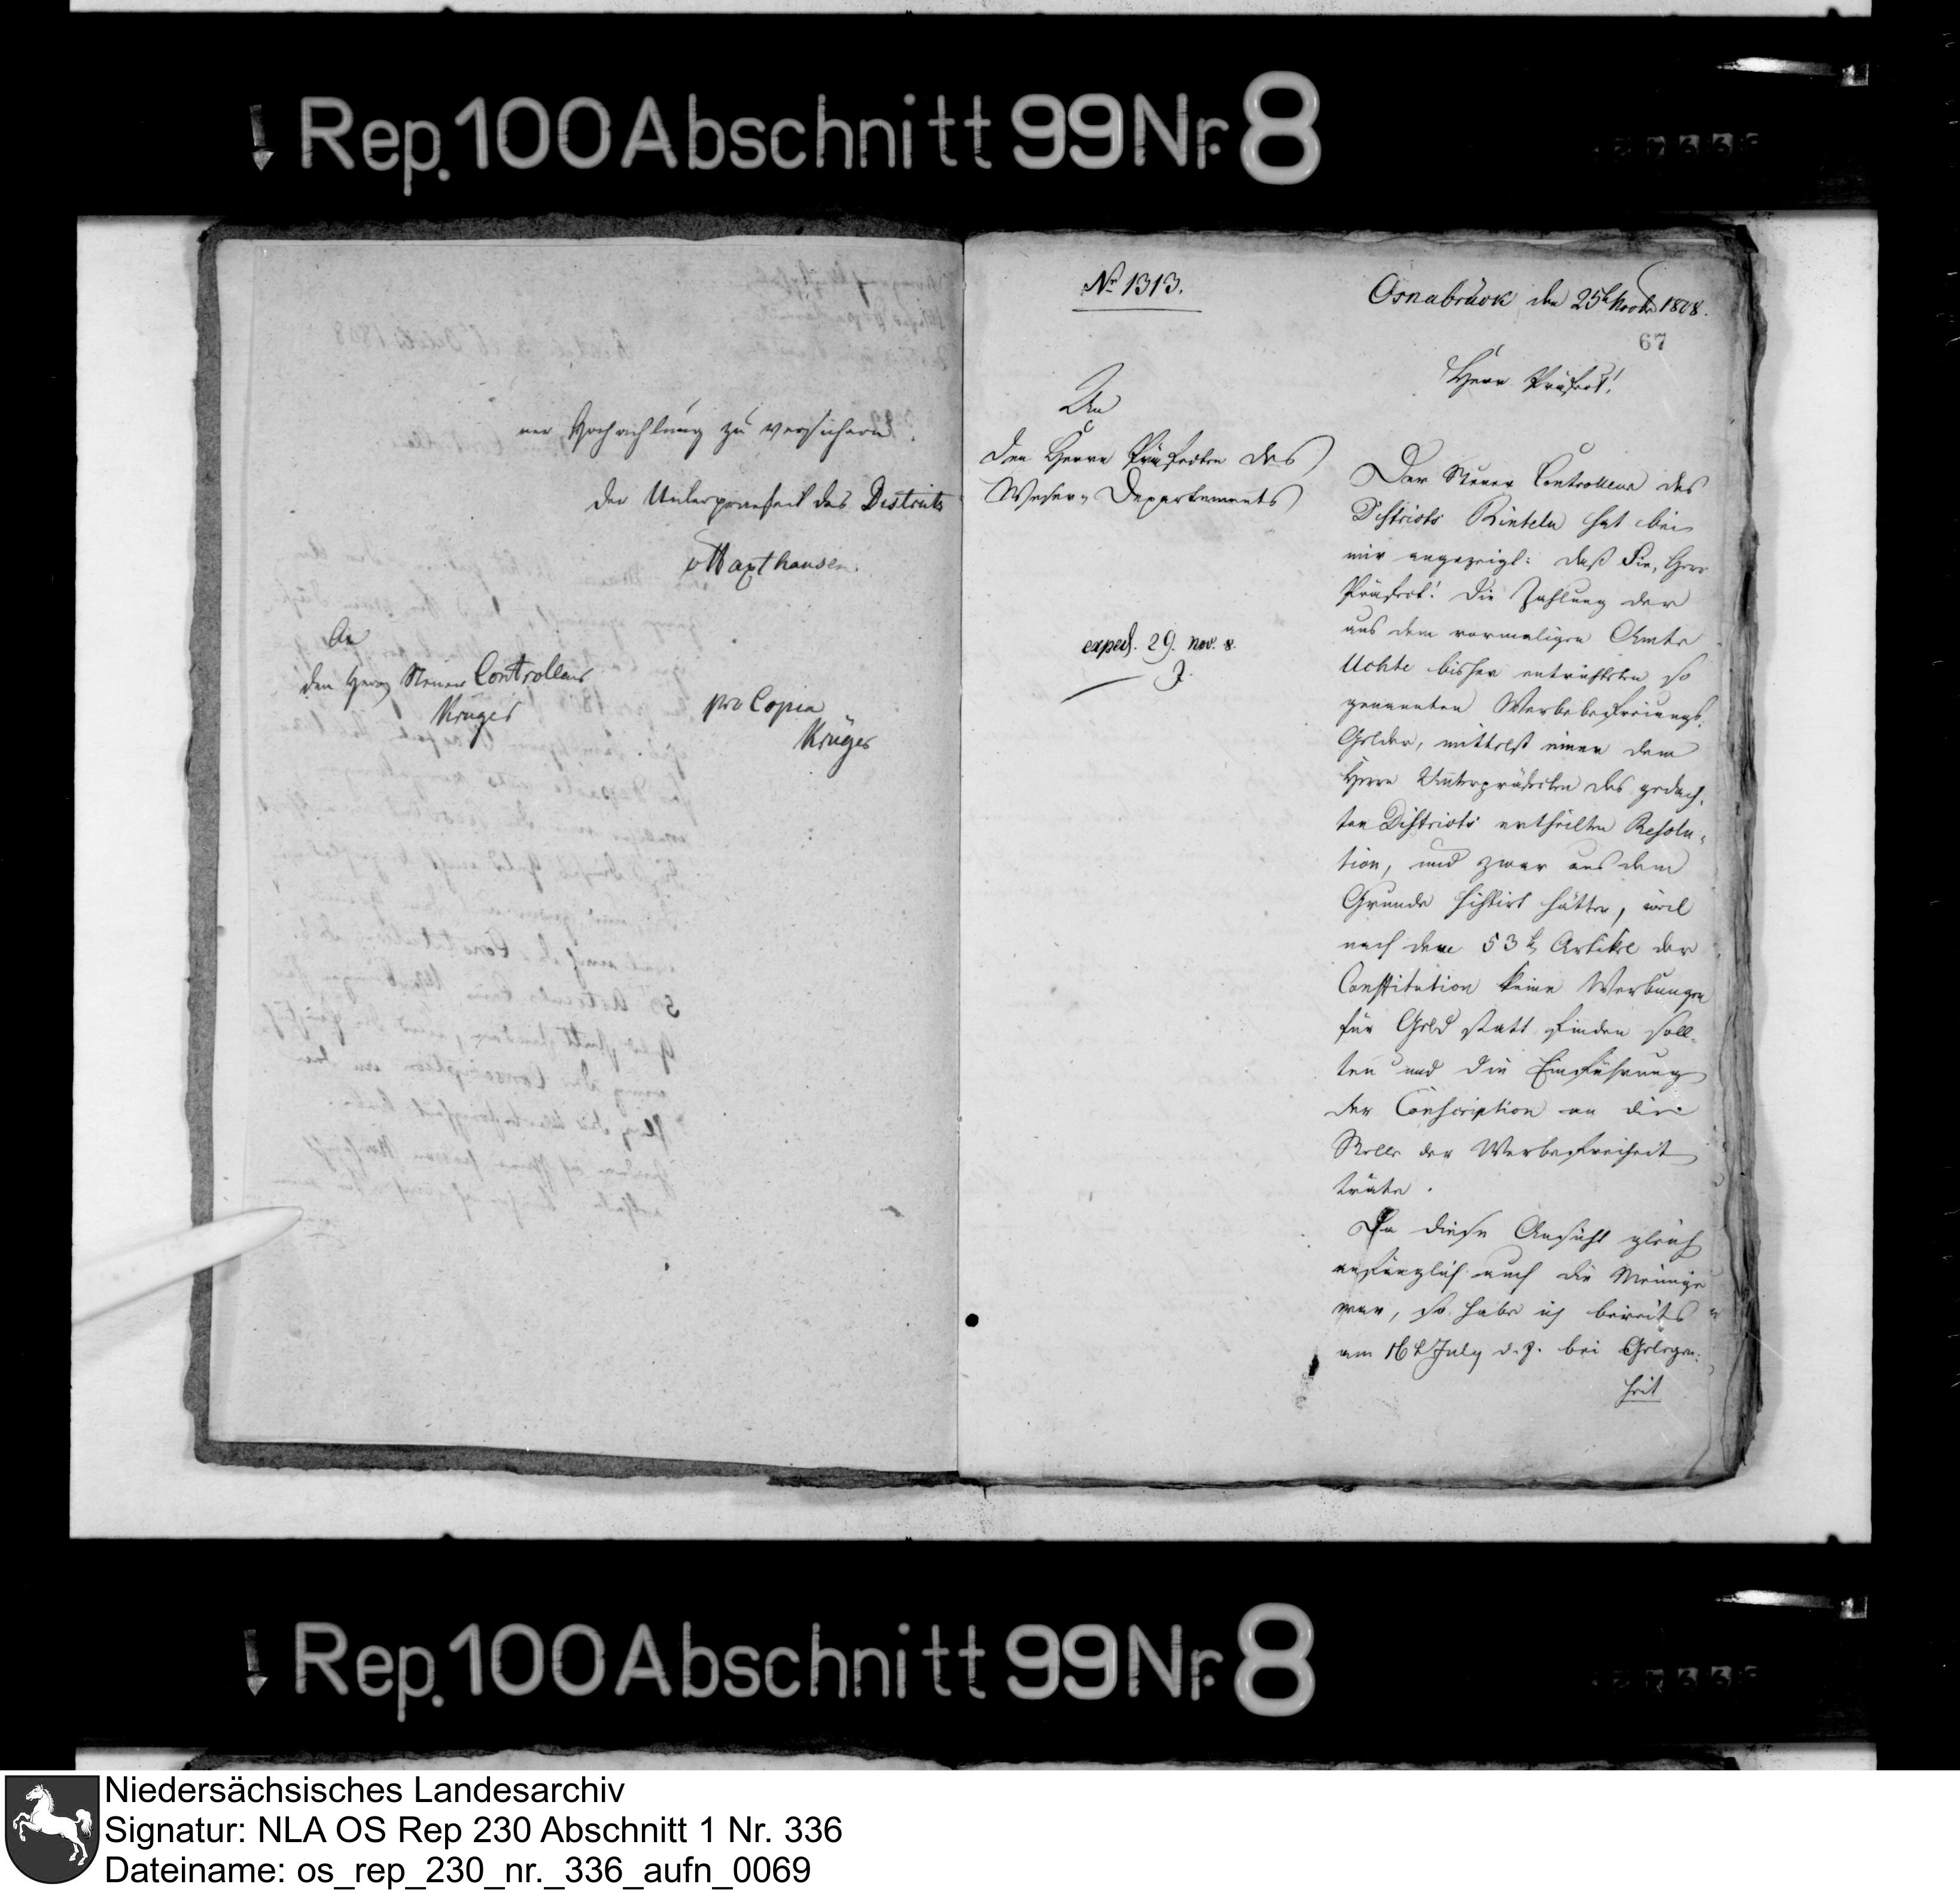 Rep. 100 Abschnitt 99 Nr. 8
ner Hochachtung zu versichern.
Der Unterpraefect des Districts
vHaxthausen.
An
den Herrn Steuer Controlleur
Krüger
pro Copia
Krüger
No 1313.
Osnabrück den 25t Novbr 1808.
67
Herr Präfect!
An
den Herrn Präfecten des
Weser-Departements
exped. 29. Nov. 8.
Der Steuer Controlleur des
Districts Rinteln hat bei
mir angezeigt: daß Sie, Herr
Präfect! die Zahlung der
aus dem vormaligen Amte
Uchte bisher entrichteten so
genannten Werbebefreiungs-
Gelder, mittelst einer dem
Herrn Unterpräfecten des gedach-
ten Districts ertheilten Resolu-
tion, und zwar aus dem
Grunde sistirt hätten, weil
nach dem 53t Artikel der
Constitution keine Werbungen
für Geld statt finden soll-
ten und die Einführung
der Conscription an die
Stelle der Werbefreiheit
träte.
Da diese Ansicht gleich
anfänglich auch die Meinige
war, so habe ich bereits
am 16t July d. J. bei Gelegen-
heit
Rep. 100 Abschnitt 99 Nr. 8
Niedersächsisches Landesarchiv
Signatur: NLA OS Rep 230 Abschnitt 1 Nr. 336
Dateiname: os_rep_230_nr._336_aufn_0069